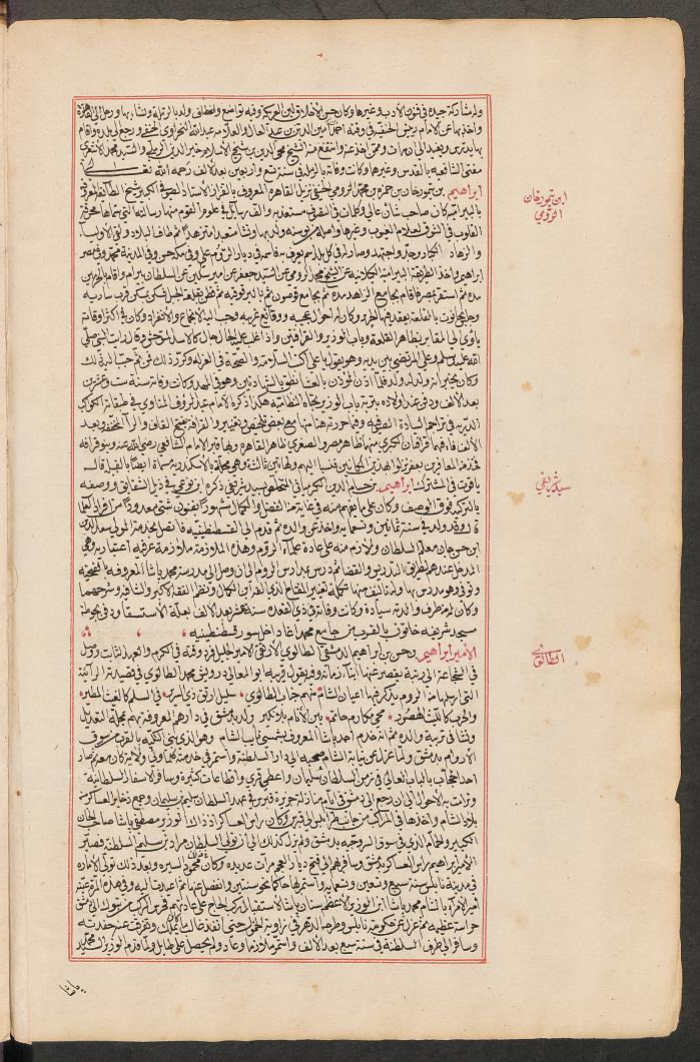 وله مشاركة جيدة في فنون الأدب وغيرها وكان حسن الأخلاق لين العريكة وفيه تواضع وتلطف ولد بالرملة ونشأ بها ورحل إلى القاهرة
واخذ بها عن الامام رئيس الحنفية في وقته احمد بن امين الدين بن عبد العال والعلامة عبد الله النحراوي الحنفي ورجع إلى بلده واقام
بها يدرس ويفيد إلى ان مات وممن اخذ عنه وانتفع به الشيخ محيي الدين بن شيخ الاسلام خير الدين الرملي والسيد محمد الاشعري
مفتي الشافعية بالقدس وغيرهما وكانت وفاته بالرملة في سنة تسع واربعين بعد الألف رحمه الله تعالى
ابراهيم بن تيمور خان بن حمزة بن محمد الرومي الحنفي نزيل القاهرة المعروف بالقزاز الاستاذ الكبير شيخ الطائفة المعروفة
بالبيرامية كان صاحب شأن عالي وكلمات في التصوف مستعذبة والف رسائل في علوم القوم منها رسالته التي سماها محرقة
القلوب في الشوق لعلام الغيوب وغيرها واصله من بوسنه ولد بها ونشأ متعبدا متزهدا ثم طاف البلاد ولقي الأولياء
والزهاد الكبار وجد واجتهد وصار له في كل بلد اسم يعرف به فاسمه في ديار الروم علي وفي مكة حسن وفي المدينة محمد وفي مصر
ابراهيم واخذ الطريقة البيرامية الكيلانية عن الشيخ محمد الرومي عن السيد جعفر عن امير سكين عن السلطان بيرام واقام بالحرمين
مدة ثم استقر بمصر فاقام بجامع الزاهد مدة ثم بجامع قوصون ثم بالبرقوقية ثم قطن بقلعة الجبل فسكن بمسكن قرب سارية
وجلس بحانوت بالقلعة يعقد فيها الحرير وكان له احوال عجيبة ووقائع غريبة وحبب اليه الانجماع والانفراد وكان في اكثر اوقاته
يأوي إلى المقابر بظاهر القلعة وباب الوزير والقرافتين واذا غلب عليه الحال جال كالاسد المتوحش وقال رأيت النبي صلى
الله عليه وسلم وعلي المرتضى بين يديه وهو يقول يا علي اكتب السلامة والصحة في العزلة وكرر ذلك فمن ثم حبب اليه ذلك
وكان يخبر انه ولد له ولد فلما اذن المؤذن بالعشا نطق بالشهادتين وهو في المهد وكانت وفاته سنة ست وعشرين
بعد الألف ودفن عند اولاده بتربة باب الوزير تجاه النظامية هكذا ذكره الامام عبد الرؤف المناوي في طبقاته الكواكب
الدرية في تراجم السادة الصوفية
ياقوت في المشترك ابراهيم بن حسام الدين الكرمياني المتخلص بسيد شريفي ذكره ابن نوعي في ذيل الشقائق ووصفه
ابن حسن جان معلم السلطان ولازم منه على عادة علماء الروم وهذه الملازمة ملازمة عرفية اعتبارية وهي
المدخل عندهم لطريق التدريس والقضا ثم درس بمدارس الروم إلى ان وصل إلى مدرسة محمد باشا المعروفة بالفتحية
وتوفي وهو مدرس بها وله تآليف منها تكملة تغيير المفتاح الذي الفه ابن الكمال ونظم الفقه الاكبر والشافية وشرحهما
وكان له من طرف والدته سيادة وكانت وفاته في ذي القعدة سنة عشر بعد الألف بعلة الاستسقا ودفن بحوطة
مسجد شريفه خاتون بالقرب من جامع محمد اغا داخل سور قسطنطينية
الامير ابراهيم بن حسن بن ابراهيم الدمشقي الطالوي الارتقي الامير الجليل فرد وقته في الكرم والعهد الثابت ووصل
في الشجاعة إلى رتبة يقصر عنها ابناء زمانه وفيه يقول قريبه ابو المعالي درويش محمد الطالوي في قصيدته الرائية
التي ارسلها من الروم يذكر فيها اعيان الشام منهم جناب الطالوي سليل ارتق ذي السرير في السلم كالغيث المطير
والحرب كالليث الهصور محيي مكارم حاتم بين الأنام بلا نكير ولد بدمشق في دارهم المعروفة بهم بمحلة التعديل
ونشأ في تربية والده ثم انه خدم احمد باشا المعروف بشمسي نائب الشام وهو الذي بنى التكية بالقرب من سوق
الاروام بدمشق ولما عزل عن نيابة الشام صحبه إلى دار السلطنة واستمر في خدمته
احد الحجاب بالباب العالي في زمن السلطان سليمان واعطي قرى واقطاعات كثيرة وسافر الاسفار السلطانية
وترقت به الأحوال إلى ان رجع إلى دمشق في ايام منازلة جزيرة قبرس في عهد السلطان سليم بن سليمان وجمع ذخائر العساكر من
بلاد الشام واخذها في المراكب من جانب طرابلس إلى قبرس وكان رأس العساكر اذ ذاك الوزير مصطفى باشا صاحب الخان
الكبير والحمام الذي في سوق السروجية بدمشق ولم يزل كذلك إلى ان تولى السلطان مراد بن سليم السلطنة فصير
الامير ابراهيم رأس العساكر بدمشق وسافر بهم إلى فتح ديار العجم مرات عديدة وكان محمود السيرة وبعد ذلك تولى الامارة
في مدينة نابلس سنة سبع وتسعين وتسعماية واستمر بها حاكما نحو سنتين وانفصل عنها ثم اعيدت اليه وفي هذه المرة عينه
امير الامراء بالشام محمد باشا ابن الوزير الاعظم سنان باشا لاستقبال ركب الحاج على عادتهم فحرس الركب من تبوك إلى دمشق
حراسة عظيمة ثم عزل عن حكومة نابلس وطرحه الدهر في زاوية الخمول حتى انفد غالب ما يملك وتفرقت عنه حفدته
وسافر إلى طرف السلطنة في سنة سبع بعد الألف واستمر ملازما وعاد ولم يحصل على طايل ولما قدم الوزير السيد محمد
ابن تيمور خان
الرومي
سيد شريفي
الطالوي